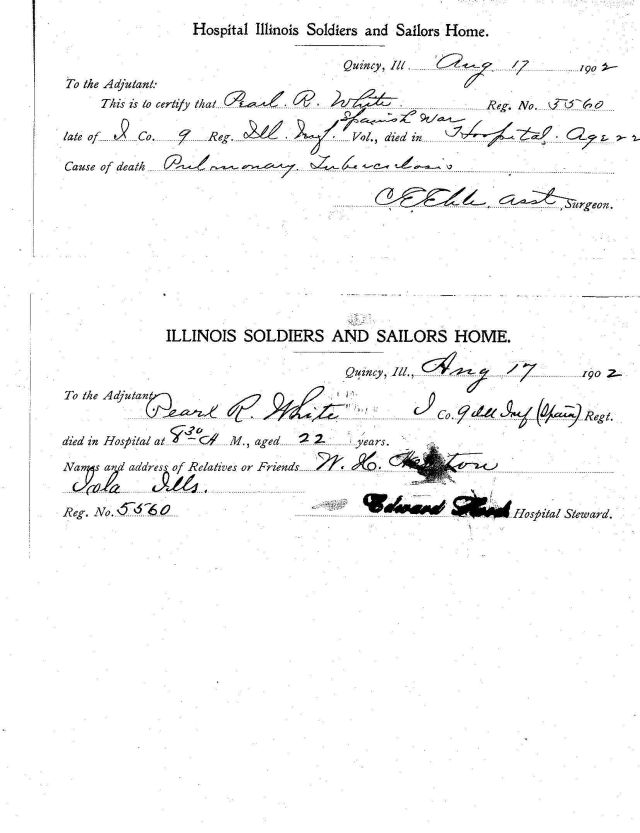 Hospital Illinois Soldiers and Sailors Home.
Quincy, Ill. Aug 17 1902
To the Adjutant:
This is to certify that Pearl R. White Reg. No. 5560
Spanish War
late of I Co. 9 Reg. Ill. Inf. Vol., died in Hospital. Age 22
Cause of death Pulmonary Tuberculosis
Asst. Surgeon.
ILLINOIS SOLDIERS AND SAILORS HOME.
Quincy, Ill., Aug 17 1902
To the Adjutant
Pearl R. White I Co. 9 Ill Inf (Spain) Regt.
died in Hospital at 8 30 A M., aged 22 years.
Names and address of Relatives or Friends W. H.
Iola Ills.
Reg. No. 5560 Edward Hospital Steward.